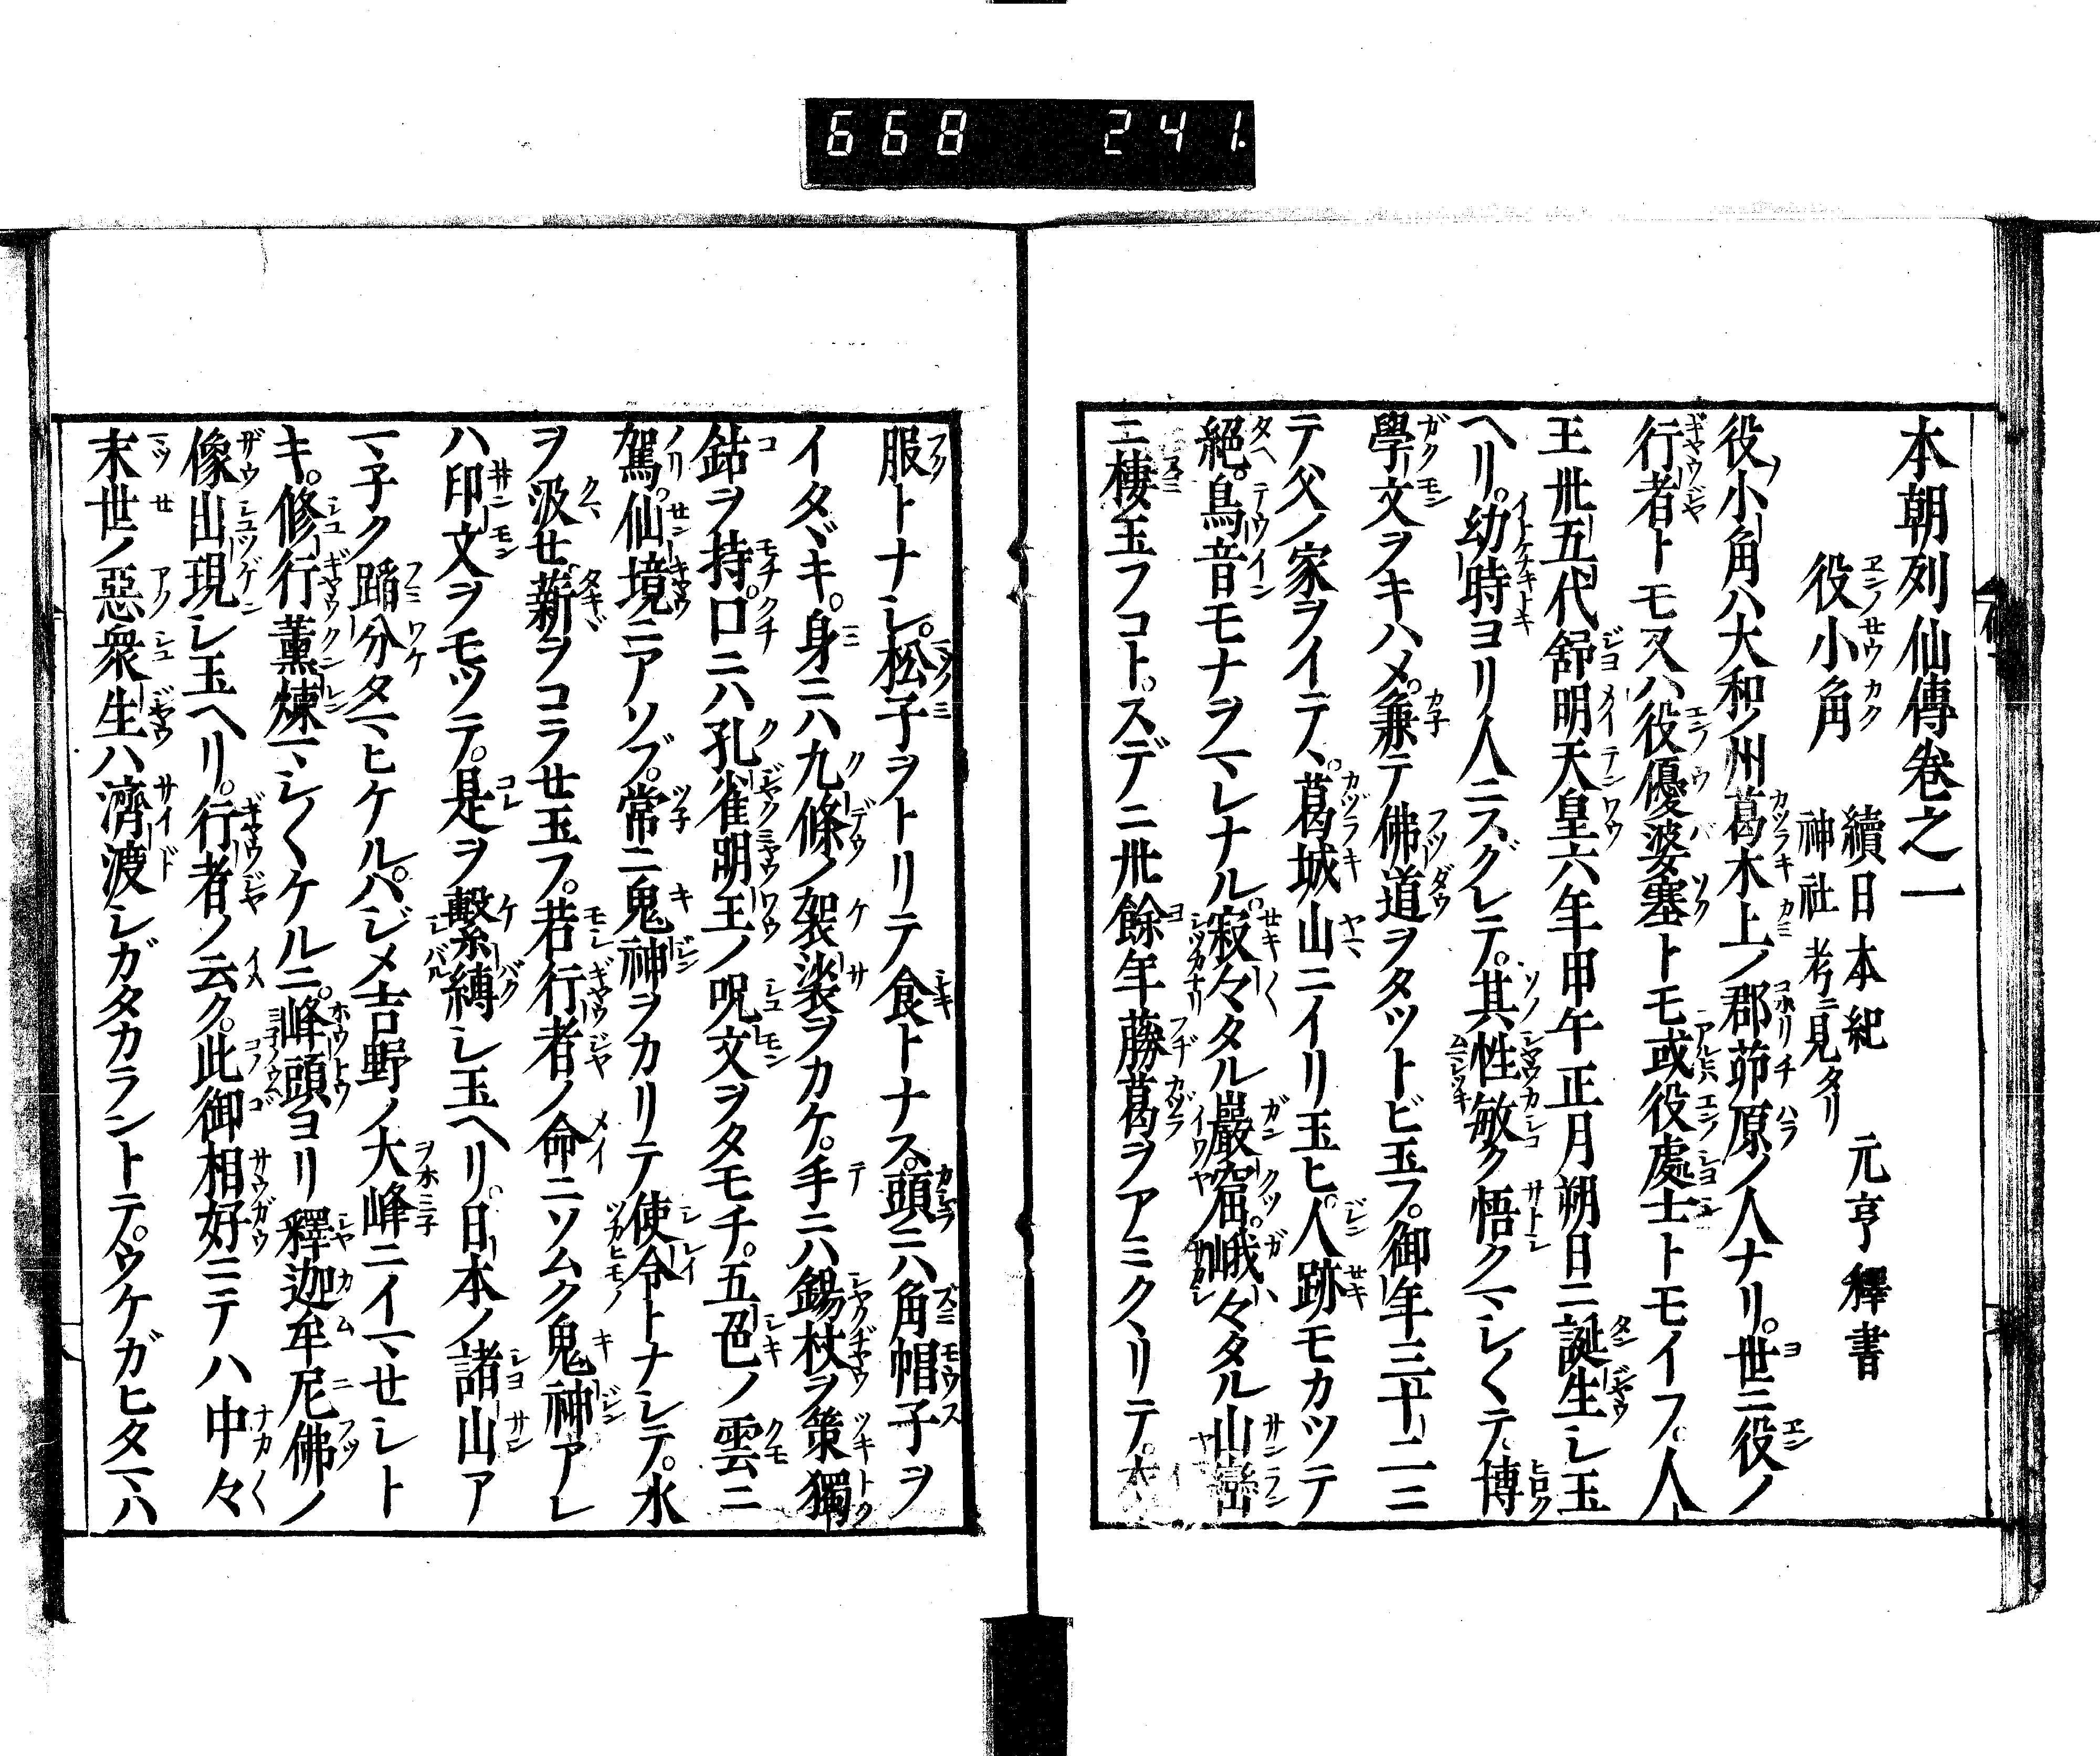 668 241.
本朝列仙傳卷之一
役小角 續日本紀 元亨釋書
神社考ニ見タリ
役小角ハ大和ノ州葛木上ノ郡茆原ノ人ナリ。世ニ役ノ
行者トモ又ハ役優婆塞トモ或役處士トモイフ。人
王丗五代舒明天皇六年甲午正月朔日ニ誕生シ玉
ヘリ。幼時ヨリ人ニスグレテ。其性敏ク悟クマシ〱テ博
學文ヲキハメ。兼テ佛道ヲタツトビ玉フ。御年三十二ニ
テ父ノ家ヲイテヽ。葛城山ニイリ玉ヒ。人跡モカツテ
絕。鳥音モナヲマレナル。寂々タル巖窟。峨々タル山巒
ニ棲玉フコト。スデニ丗餘年藤葛ヲアミクヽリテ。衣
服トナシ。松子ヲトリテ食トナス。頭ニハ角帽子ヲ
イタヾキ。身ニハ九條ノ袈裟ヲカケ。手ニハ錫杖ヲ策獨
鈷ヲ持。口ニハ孔雀明王ノ呪文ヲタモチ。五色ノ雲ニ
駕。仙境ニアソブ。常ニ鬼神ヲカリテ使令トナシテ。水
ヲ汲セ薪ヲコラセ玉フ。若行者ノ命ニソムク鬼神アレ
ハ印文ヲモツテ。是ヲ繫縛シ玉ヘリ。日本ノ諸山ア
マ子ク蹈分タマヒケル。ハジメ吉野ノ大峰ニイマセシト
キ。修行薰煉マシ〱ケルニ。峰頭ヨリ釋迦牟尼佛ノ
像出現シ玉ヘリ。行者ノ云ク。此御相好ニテハ中々
末世ノ惡衆生ハ濟渡シガタカラントテ。ウケガヒタマハ